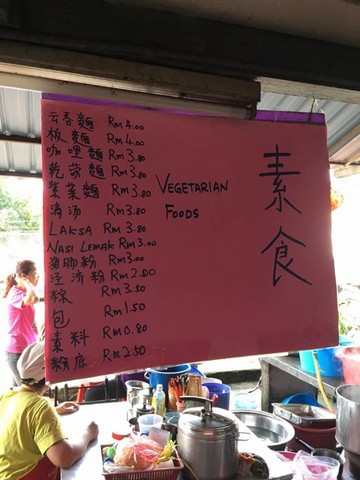 云吞麵 RM4.00
板麵 RM4.00
咖哩麵 RM3.80
RM3.80
紫菜麵 RM3.80
清汤 RM3.80
LAKSA RM3.80
NASI LEMAK RM3.00
猪肠粉 RM3.00
经济粉 RM2.80
粽 RM3.50
包 RM1.50
素料 RM0.80
粉底 RM2.50
VEGETARIAN
FOODS
素食